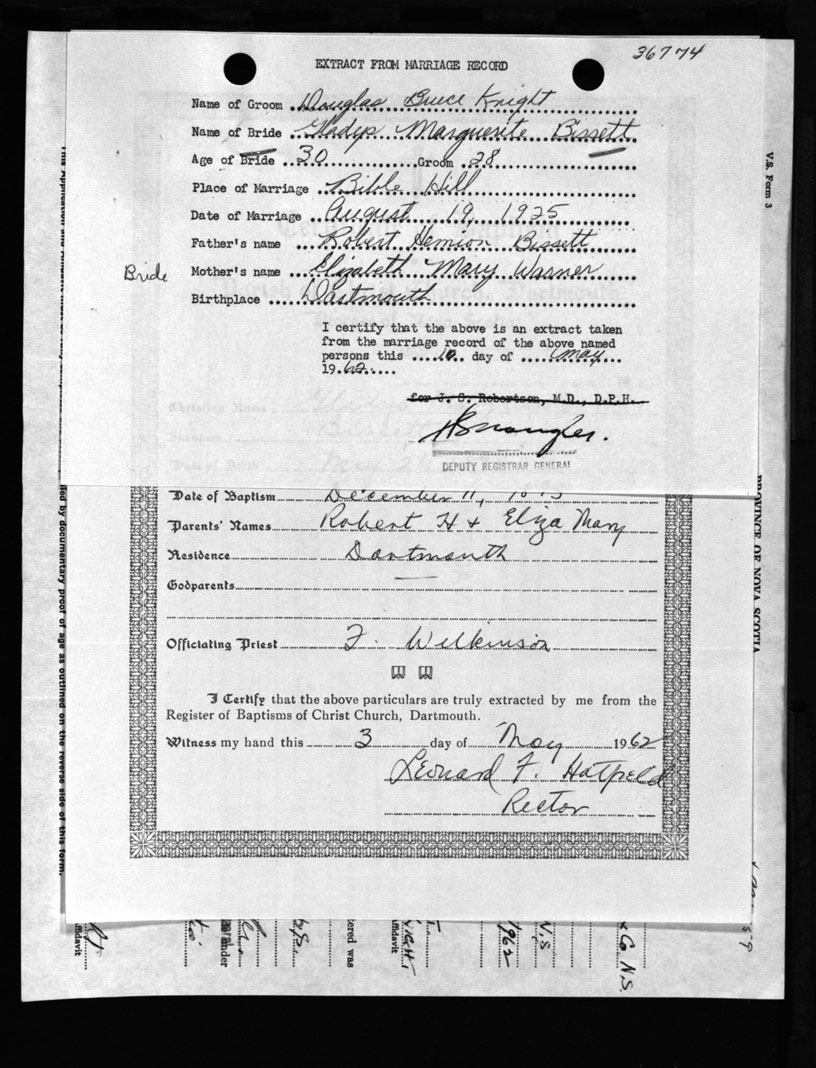 36774
EXTRACT FROM MARRIAGE RECORD
Name of Groom Douglas Bruce Knight
Name of Bride Gladys Marguerite Bissett
Age of Bride 30 Groom 28
Place of Marriage Bible Hill
Date of Marriage August 19, 1925
Father's name Robert Bissett
Bride Mother's name Elizabeth Mary Warner
Birthplace Dartmouth
I certify that the above is an extract taken
from the marriage record of the above named
persons this 10 day of May
1962
for J. S. Robertson, M.D., D.P.H.
DEPUTY REGISTRAR GENERAL
Date of Baptism December 11,
Parents' Names Robert H & Eliza Mary
Residence Dartmouth
Godparents —
Officiating Priest F. Wilkinson
I Certify that the above particulars are truly extracted by me from the
Register of Baptisms of Christ Church, Dartmouth.
Witness my hand this 3 day of May 1962
Leonard F. Hatfield
Rector
V.S. Form 3
PROVINCE OF NOVA SCOTIA
by documentary proof of age as outlined on the reverse side of this form.
ffidavit
tered was
ffidavit
1962
N.S
Co N.S.